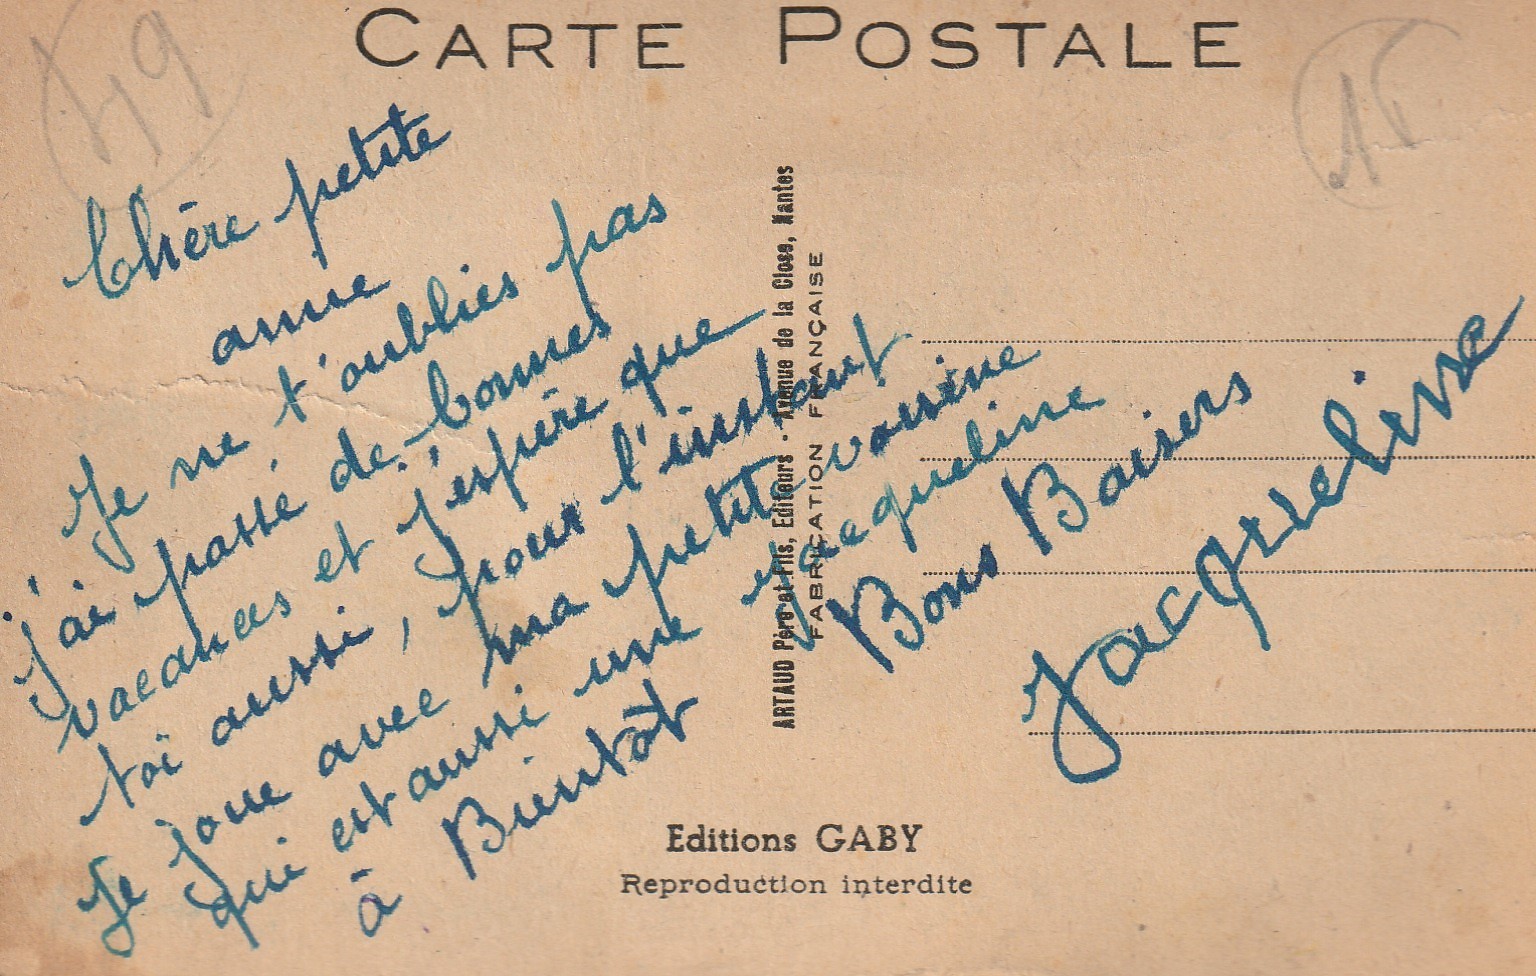 CARTE POSTALE
49
Chère petite
amie
Je ne t'oublies pas
j'ai passé de bonnes
vacances et j'espère que
toi aussi, pour l'instant
Je joue avec ma petite voisine
qui est aussi une Jacqueline
à Bientôt Bons Baisers
Jacqueline
ARTAUD Père et Fils, Editeurs - Avenue de la Close, Nantes
FABRICATION FRANÇAISE
Editions GABY
Reproduction interdite